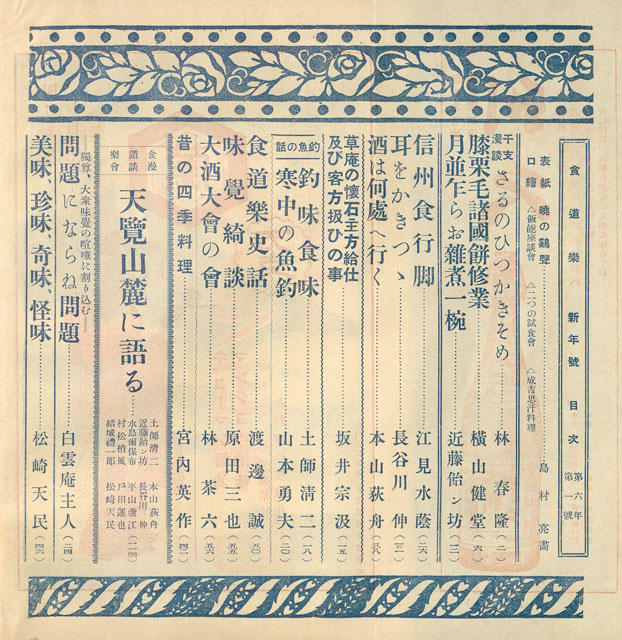 食道樂 新年號 目次 第六年 第一號
表紙 曉の鷄聲 島村亮畵
口繪 △飯能座談會 △二つの試食會 △成吉思汗料理
干支漫談 さるのひつかきそめ 林春隆(二)
膝栗毛諸國餅修業 橫山健堂(六)
月並乍らお雜煮一椀 近藤飴ン坊(一二)
信州食行脚 江見水蔭(二六)
耳をかきつゝ 長谷川伸(三一)
酒は何處へ行く 本山荻舟(三八)
草庵の懷石主方給仕
及び客方扱ひの事 坂井宗汲(一五)
釣魚の話
釣味食味 土師淸二(一八)
寒中の魚釣 山本勇夫(二〇)
食道樂史話 渡邊誠(五〇)
味覺綺談 原田三也(五五)
大酒大會の會 林茶六(五六)
昔の四季料理 宮內英作(四一)
食道樂漫談會
天覽山麓に語る
土師淸二 本山荻舟
近藤飴ン坊 長谷川伸
水島爾保布 平山蘆江
村松梢風 戸田蓮也
結城禮一郎 松崎天民
(一四)
——獨尊、大衆味覺の喧嘩に割り込む——
問題にならね問題 白雲庵主人(二四)
美味、珍味、奇味、怪味 松崎天民(四六)